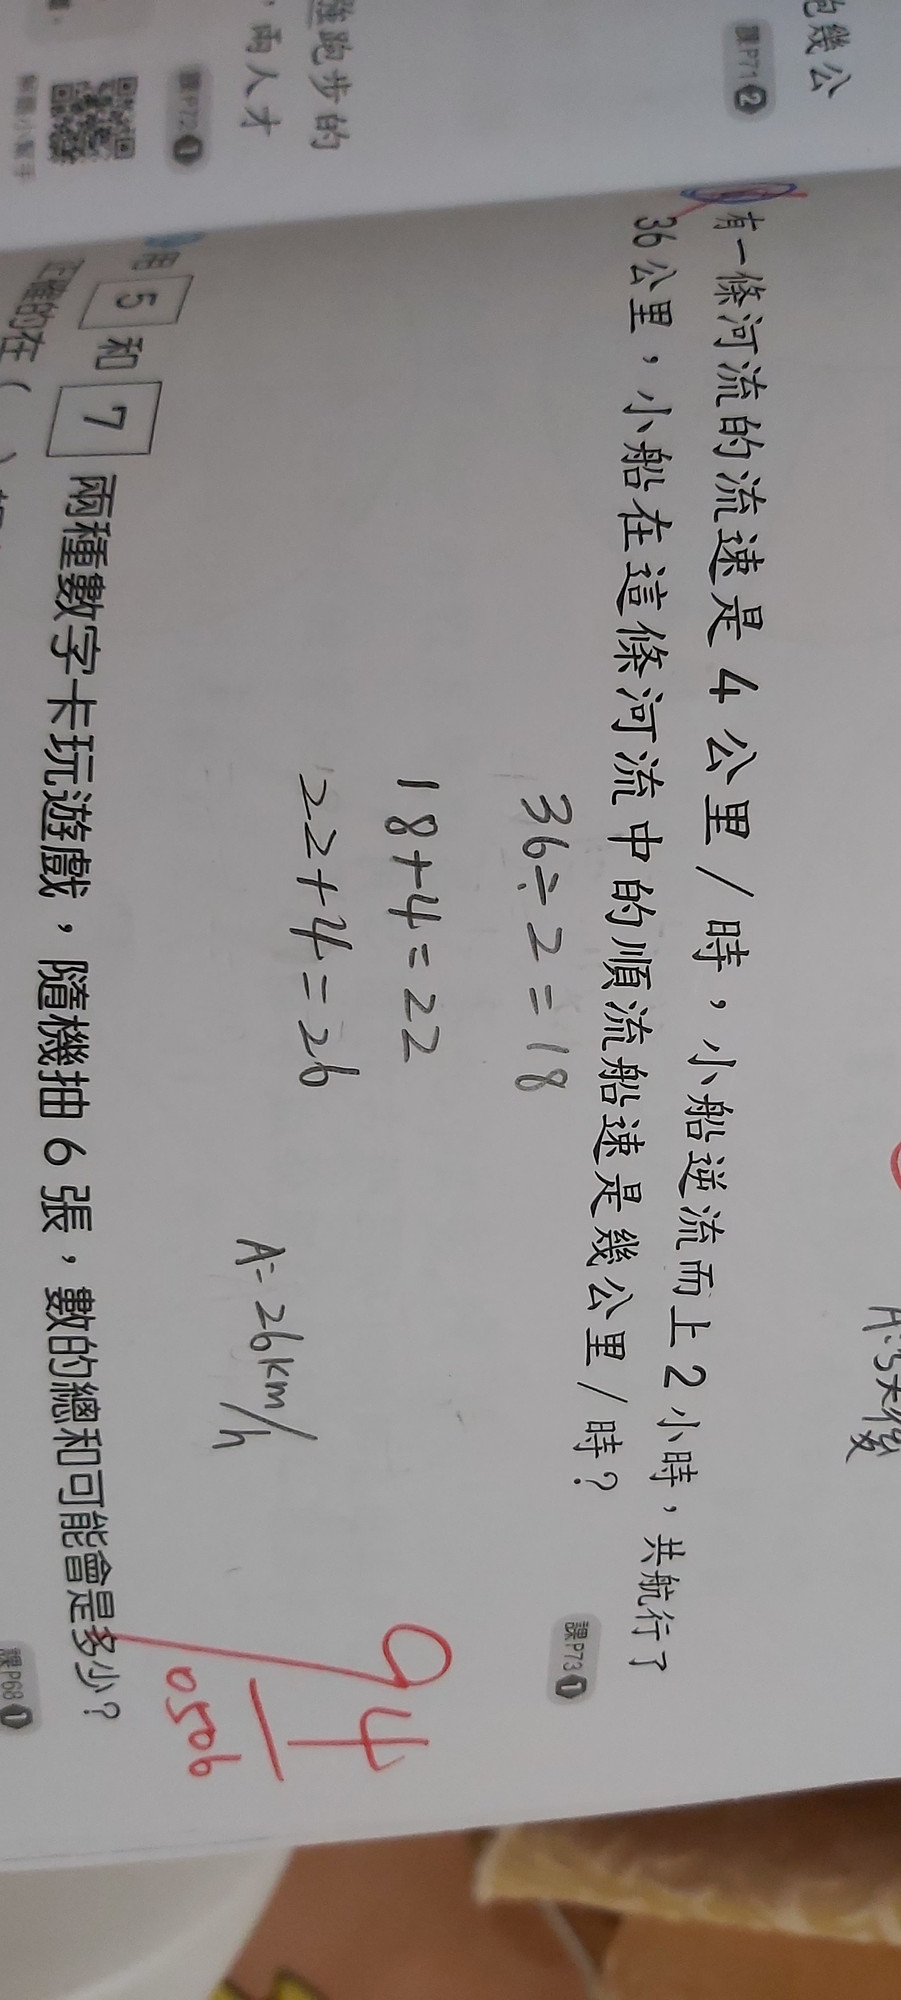 跑幾公
課P71 2
強跑步的
，兩人才
課P72 1
有一條河流的流速是 4 公里／時，小船逆流而上 2 小時，共航行了
36 公里，小船在這條河流中的順流船速是幾公里／時？
課P73 1
36÷2=18
18+4=22
22+4=26
A:26km/h
94
0506
用 5 和 7 兩種數字卡玩遊戲，隨機抽 6 張，數的總和可能會是多少？
正確的在（ ）
課P68 1